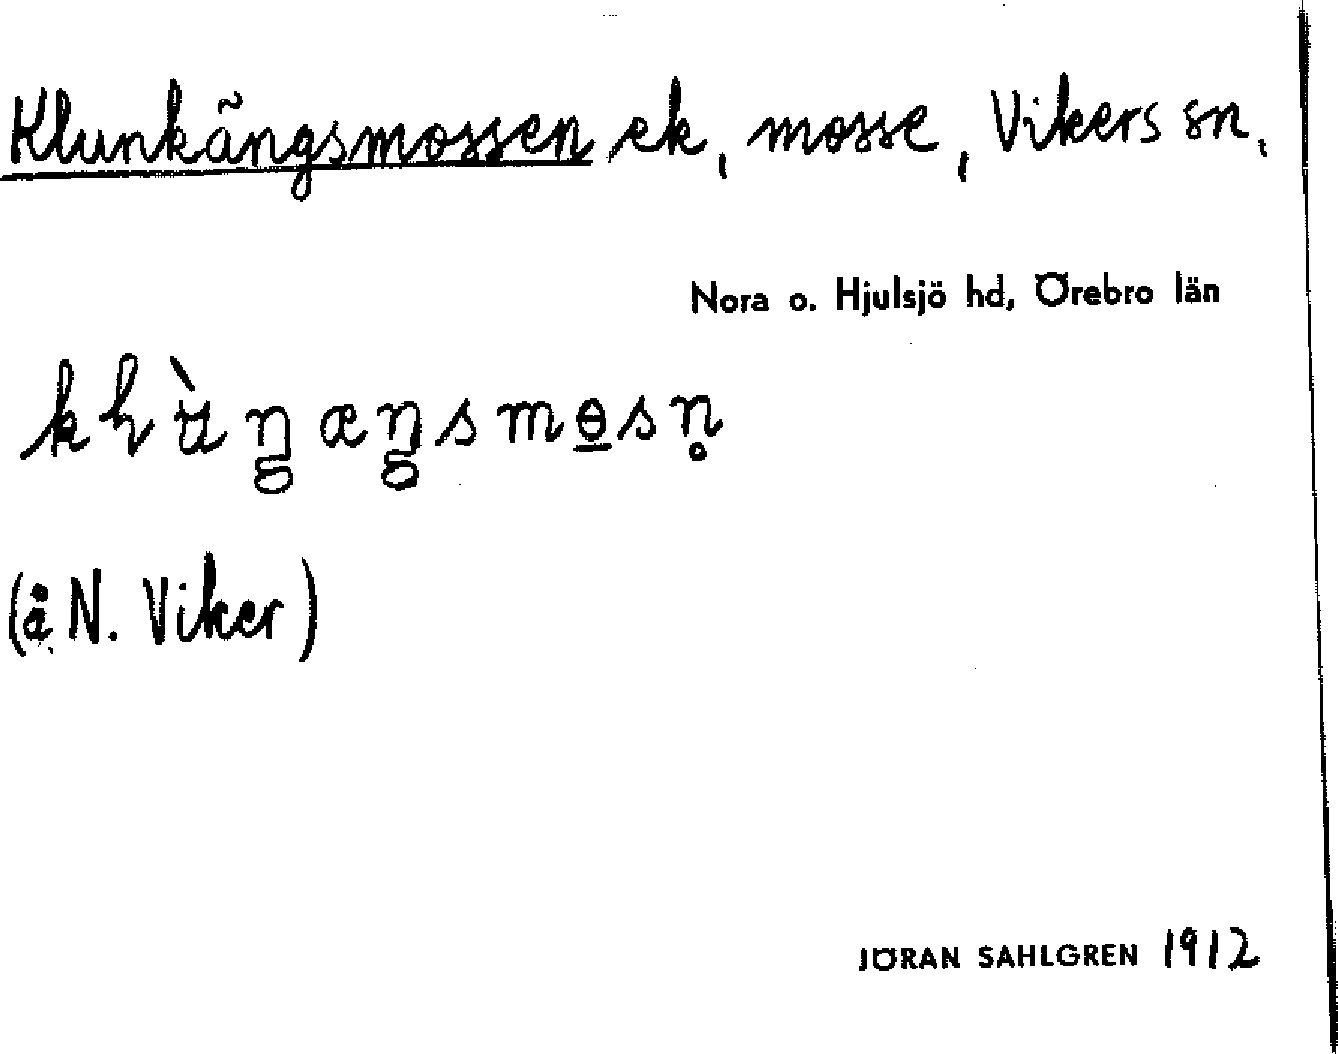 Klunkängsmossen ek, mosse, Vikers sn,
Nora o. Hjulsjö hd, Örebro län
(å N. Viker)
JÖRAN SAHLGREN 1912